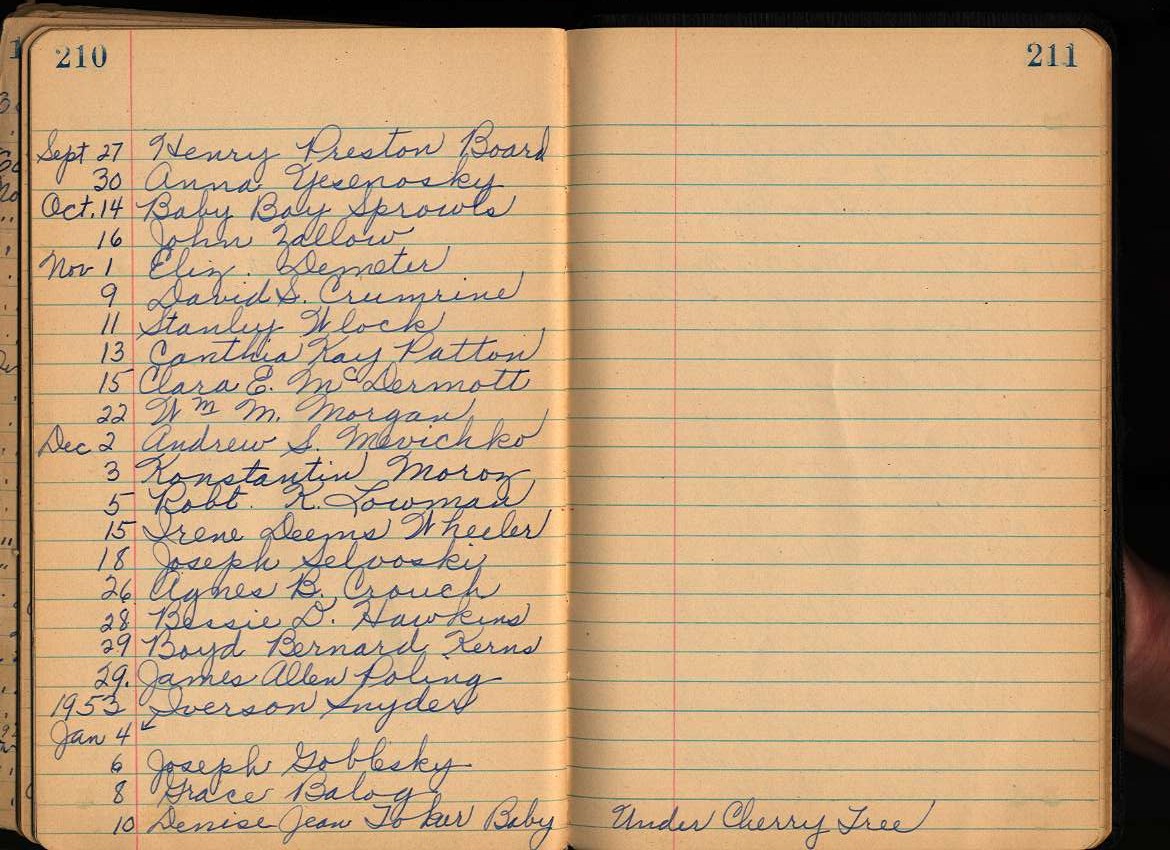 210
211
Sept 27 Henry Preston Board
30 Anna Yesenosky
Oct. 14 Baby Boy Sprowls
16 John Zallow
Nov 1 Eliz. Demeter
9 David S. Crumrine
11 Stanley Wlock
13 Canthia Kay Patton
15 Clara E. McDermott
22 Wm M. Morgan
Dec 2 Andrew S. Mevichko
3 Konstantin Moroz
5 Robt. K. Lowman
15 Irene Deems Wheeler
18 Joseph Selvoski
26 Agnes B. Crouch
28 Bessie D. Hawkins
29 Boyd Bernard Kerns
29. James Allen Poling
1953 Iverson Snyder
Jan 4
6 Joseph Goblesky
8 Grace Balog
10 Denise Jean Baby Under Cherry Tree